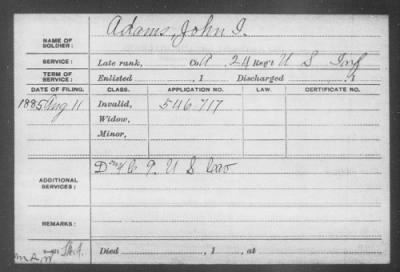 NAME OF SOLDIER: Adams, John
SERVICE: Late rank, Co A 24 Reg't U S Inf
TERM OF SERVICE: Enlisted , 1 Discharged , 1
DATE OF FILING. CLASS. APPLICATION NO. LAW. CERTIFICATE NO.
1885 Aug 11 Invalid, 546 717
Widow,
Minor,
ADDITIONAL SERVICES: 9 U S Cav
REMARKS:
Died , 1 , at